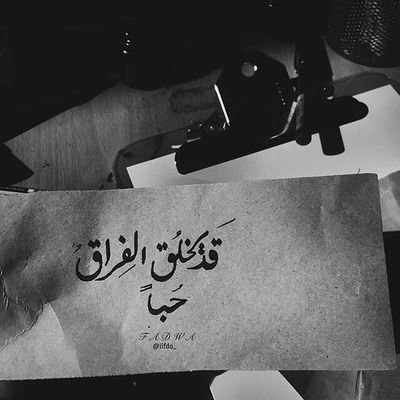 قَدْ يَخلُق الفِراقُ
حُباً
FADWA
@iifdo_